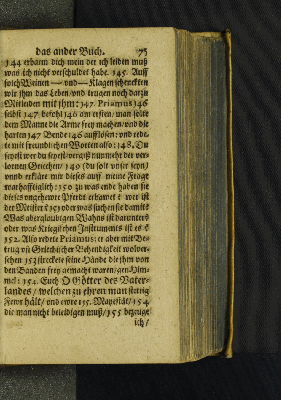 das ander Buch. 75
144 erbarm dich mein der ich leiden muß
was ich nicht verschuldet habe. 145. Auff
solch Weinen — und — Klagen schenckten
wir ihm das Leben/ und trugen noch darzu
Mitleiden mit ihm: 147. Priamus 146
selbst 147 befohl 146 am ersten/ man solte
dem Manne die Arme frey machen/ und die
harten 147 Bende 146 aufflösen: und rede-
te mit freundlichen Worten also: 148. Du
seyst wer du seyest/ vergiß nur mehr der ver-
lornen Griechen/ 149 (du solt unser seyn)
unnd erkläre mir dieses auff meine Frage
warhafftiglich: 150 zu was ende haben sie
dieses ungehewre Pferdt erbawet? wer ist
der Meister? 151 oder was suchen sie damit?
Was aberglaubigen Wahns ist darunter?
oder was Kriegischen Instruments ist es?
152. Also redete Priamus: er aber mit Be-
trug uñ Griechischer Behendigkeit wolver-
sehen 153 streckete seine Hände die ihm von
den Banden frey gemacht waren/ gen Him-
mel: 154. Euch O Götter des Vater-
landes/ welchen zu ehren man stetig
Fewr hält/ und ewre 155. Mayestät/ 154
die man nicht beleidigen muß/ 155 bezeuge
ich/